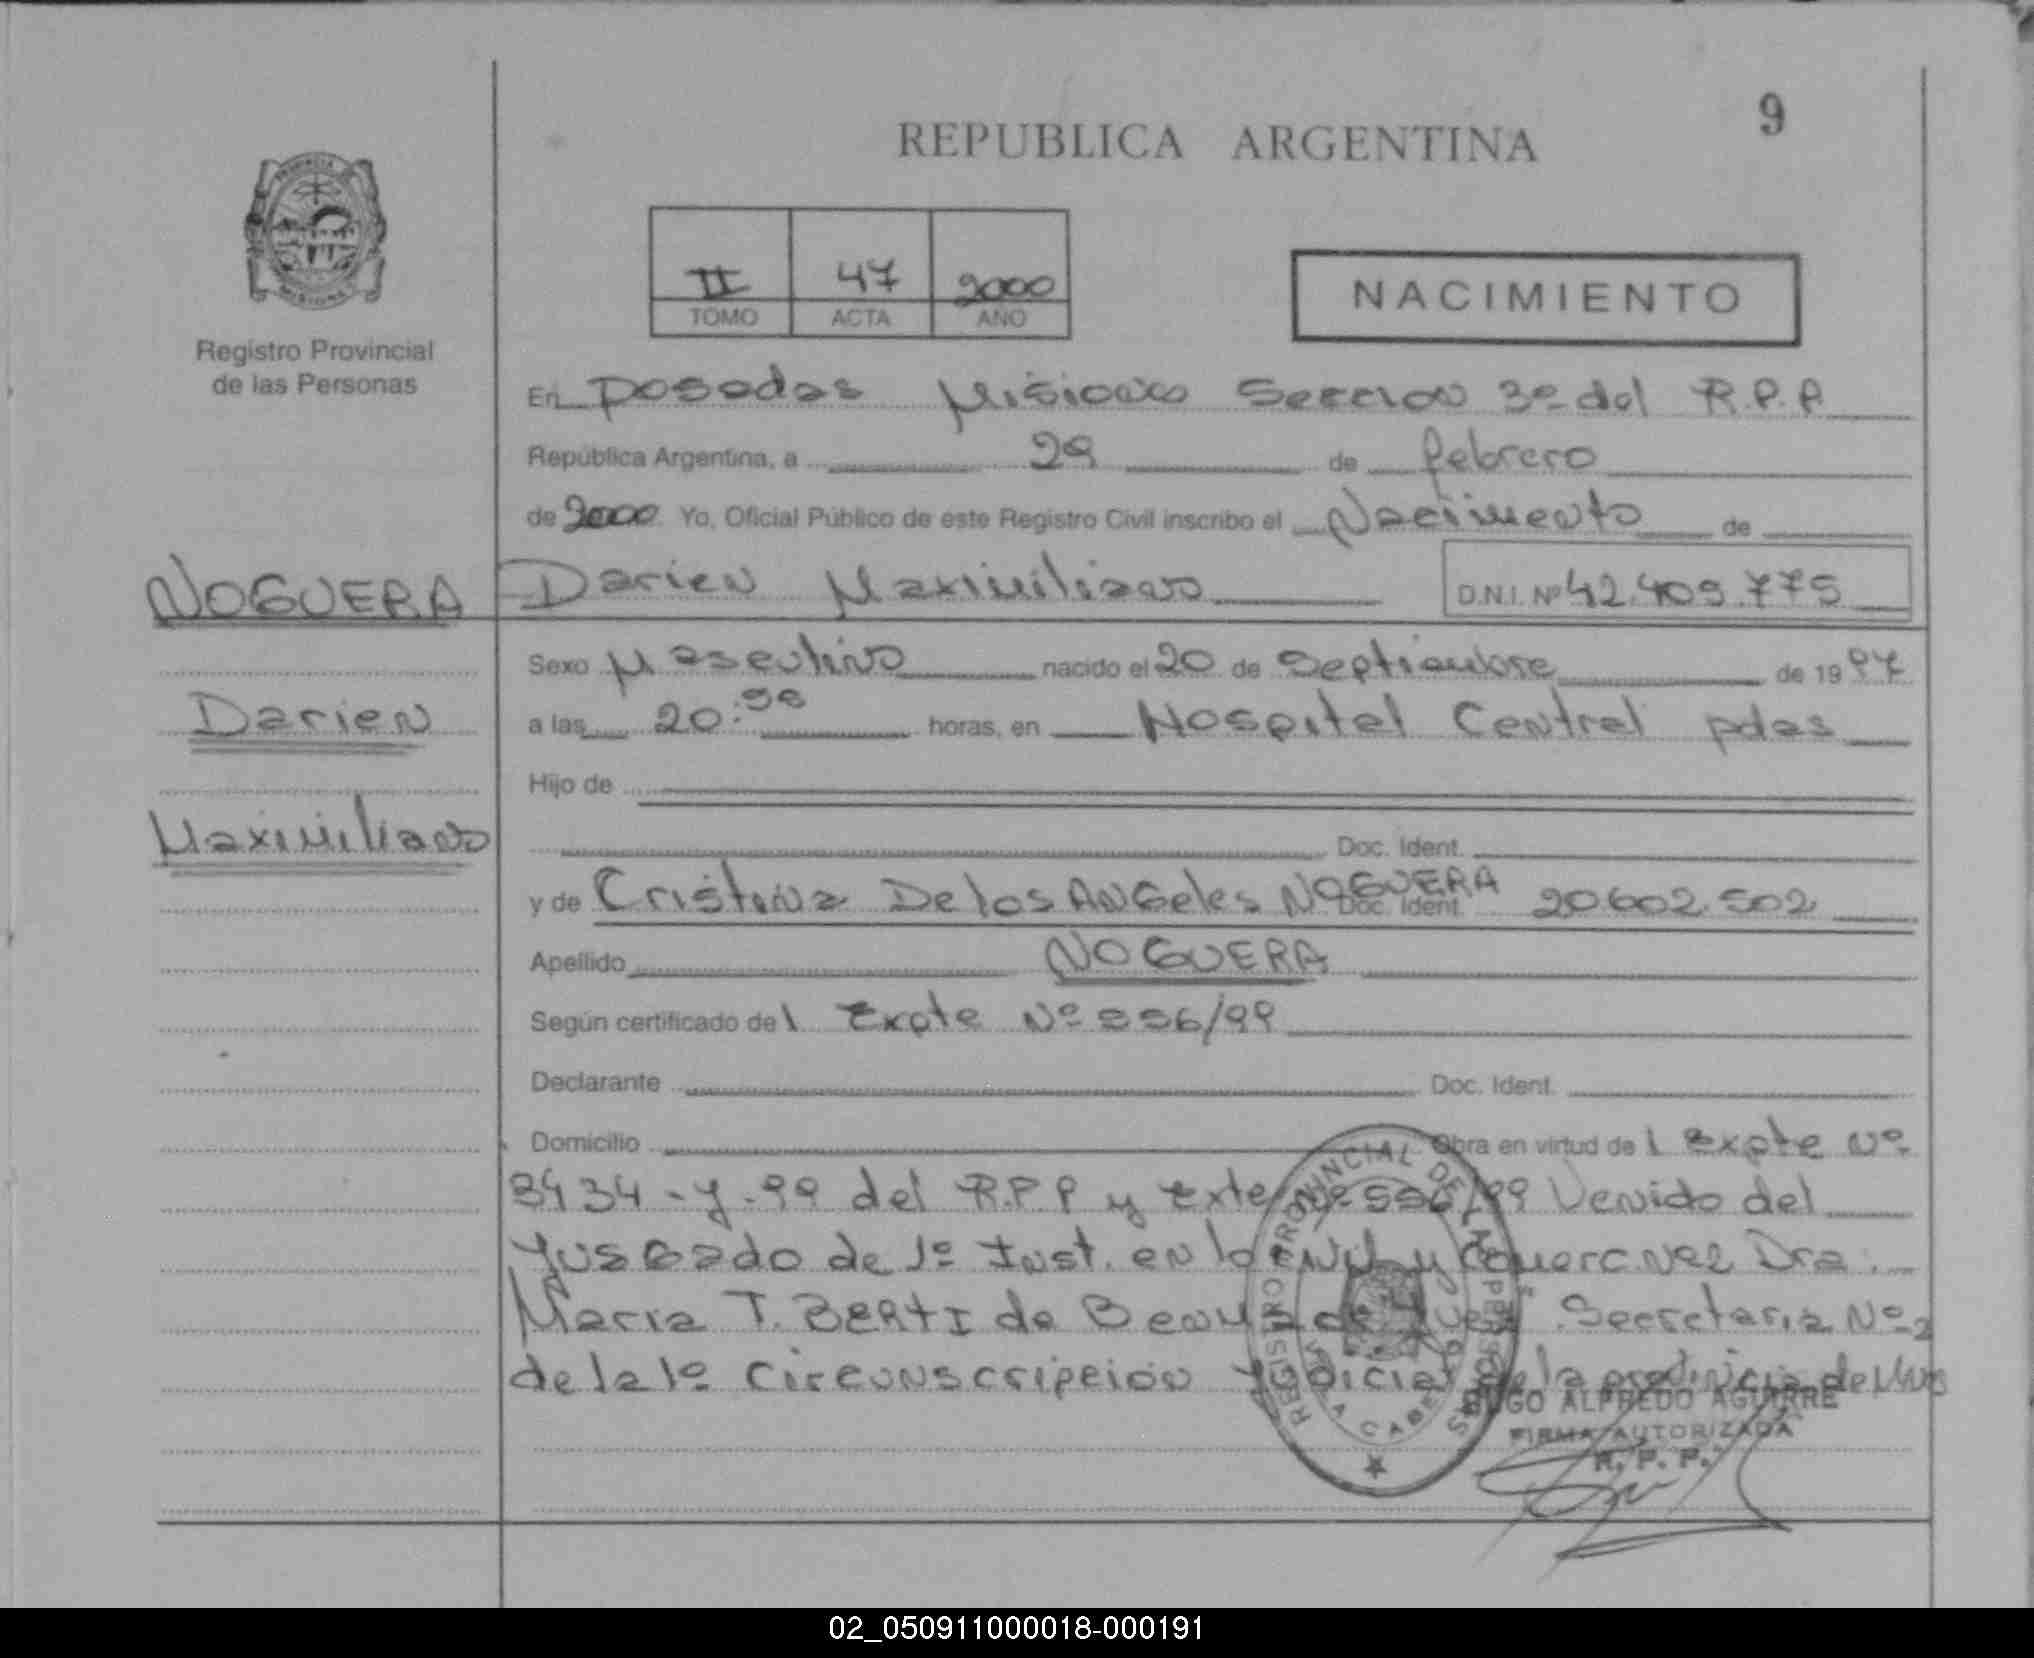 9
REPUBLICA ARGENTINA
II 47 2000
TOMO ACTA AÑO
NACIMIENTO
Registro Provincial
de las Personas
En Posadas Misiones Seccion 3º del R.P.P.
República Argentina, a 29 de febrero
de 2000 Yo, Oficial Público de este Registro Civil inscribo el Nacimiento de
NOGUERA Darien Maximiliano D.N.I. Nº 42.409.775
Sexo Masculino nacido el 20 de Septiembre de 1997
Darien
a las 20: horas, en Hospital Central pdas
Hijo de
Maximiliano
Doc. Ident.
y de Cristina De los ANGeles NOGUERA Doc. Ident. 20602.502
Apellido NOGUERA
Según certificado del Expte Nº /99
Declarante Doc. Ident.
Domicilio Obra en virtud del Expte Nº
3434-y-99 del R.P.P y Exte /99 Venido del
Yusgado de 1º Inst. en lo Civil y Dra.
Maria T. BERTI de Secretaria Nº 2
de la 1º Circunscripcion Yudicial de la provincia de
REGISTRO PROVINCIAL DE LAS PERSONAS
HUGO ALFREDO AGUIRRE
FIRMA AUTORIZADA
R. P. P.
02_050911000018-000191